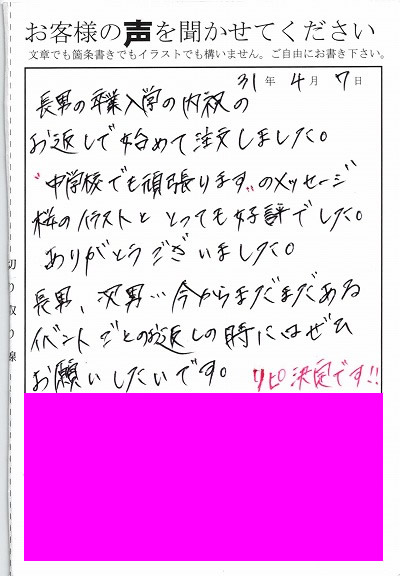 お客様の声を聞かせてください
文章でも箇条書きでもイラストでも構いません。ご自由にお書き下さい。
31年 4月 7日
長男の卒業入学の内祝の
お返しで始めて注文しました。
"中学校でも頑張ります"のメッセージ
桜のイラストと とっても好評でした。
ありがとうございました。
長男、次男…今からまだまだある
イベントごとのお返しの時にはぜひ
お願いしたいです。 リピ決定です!!
切り取り線